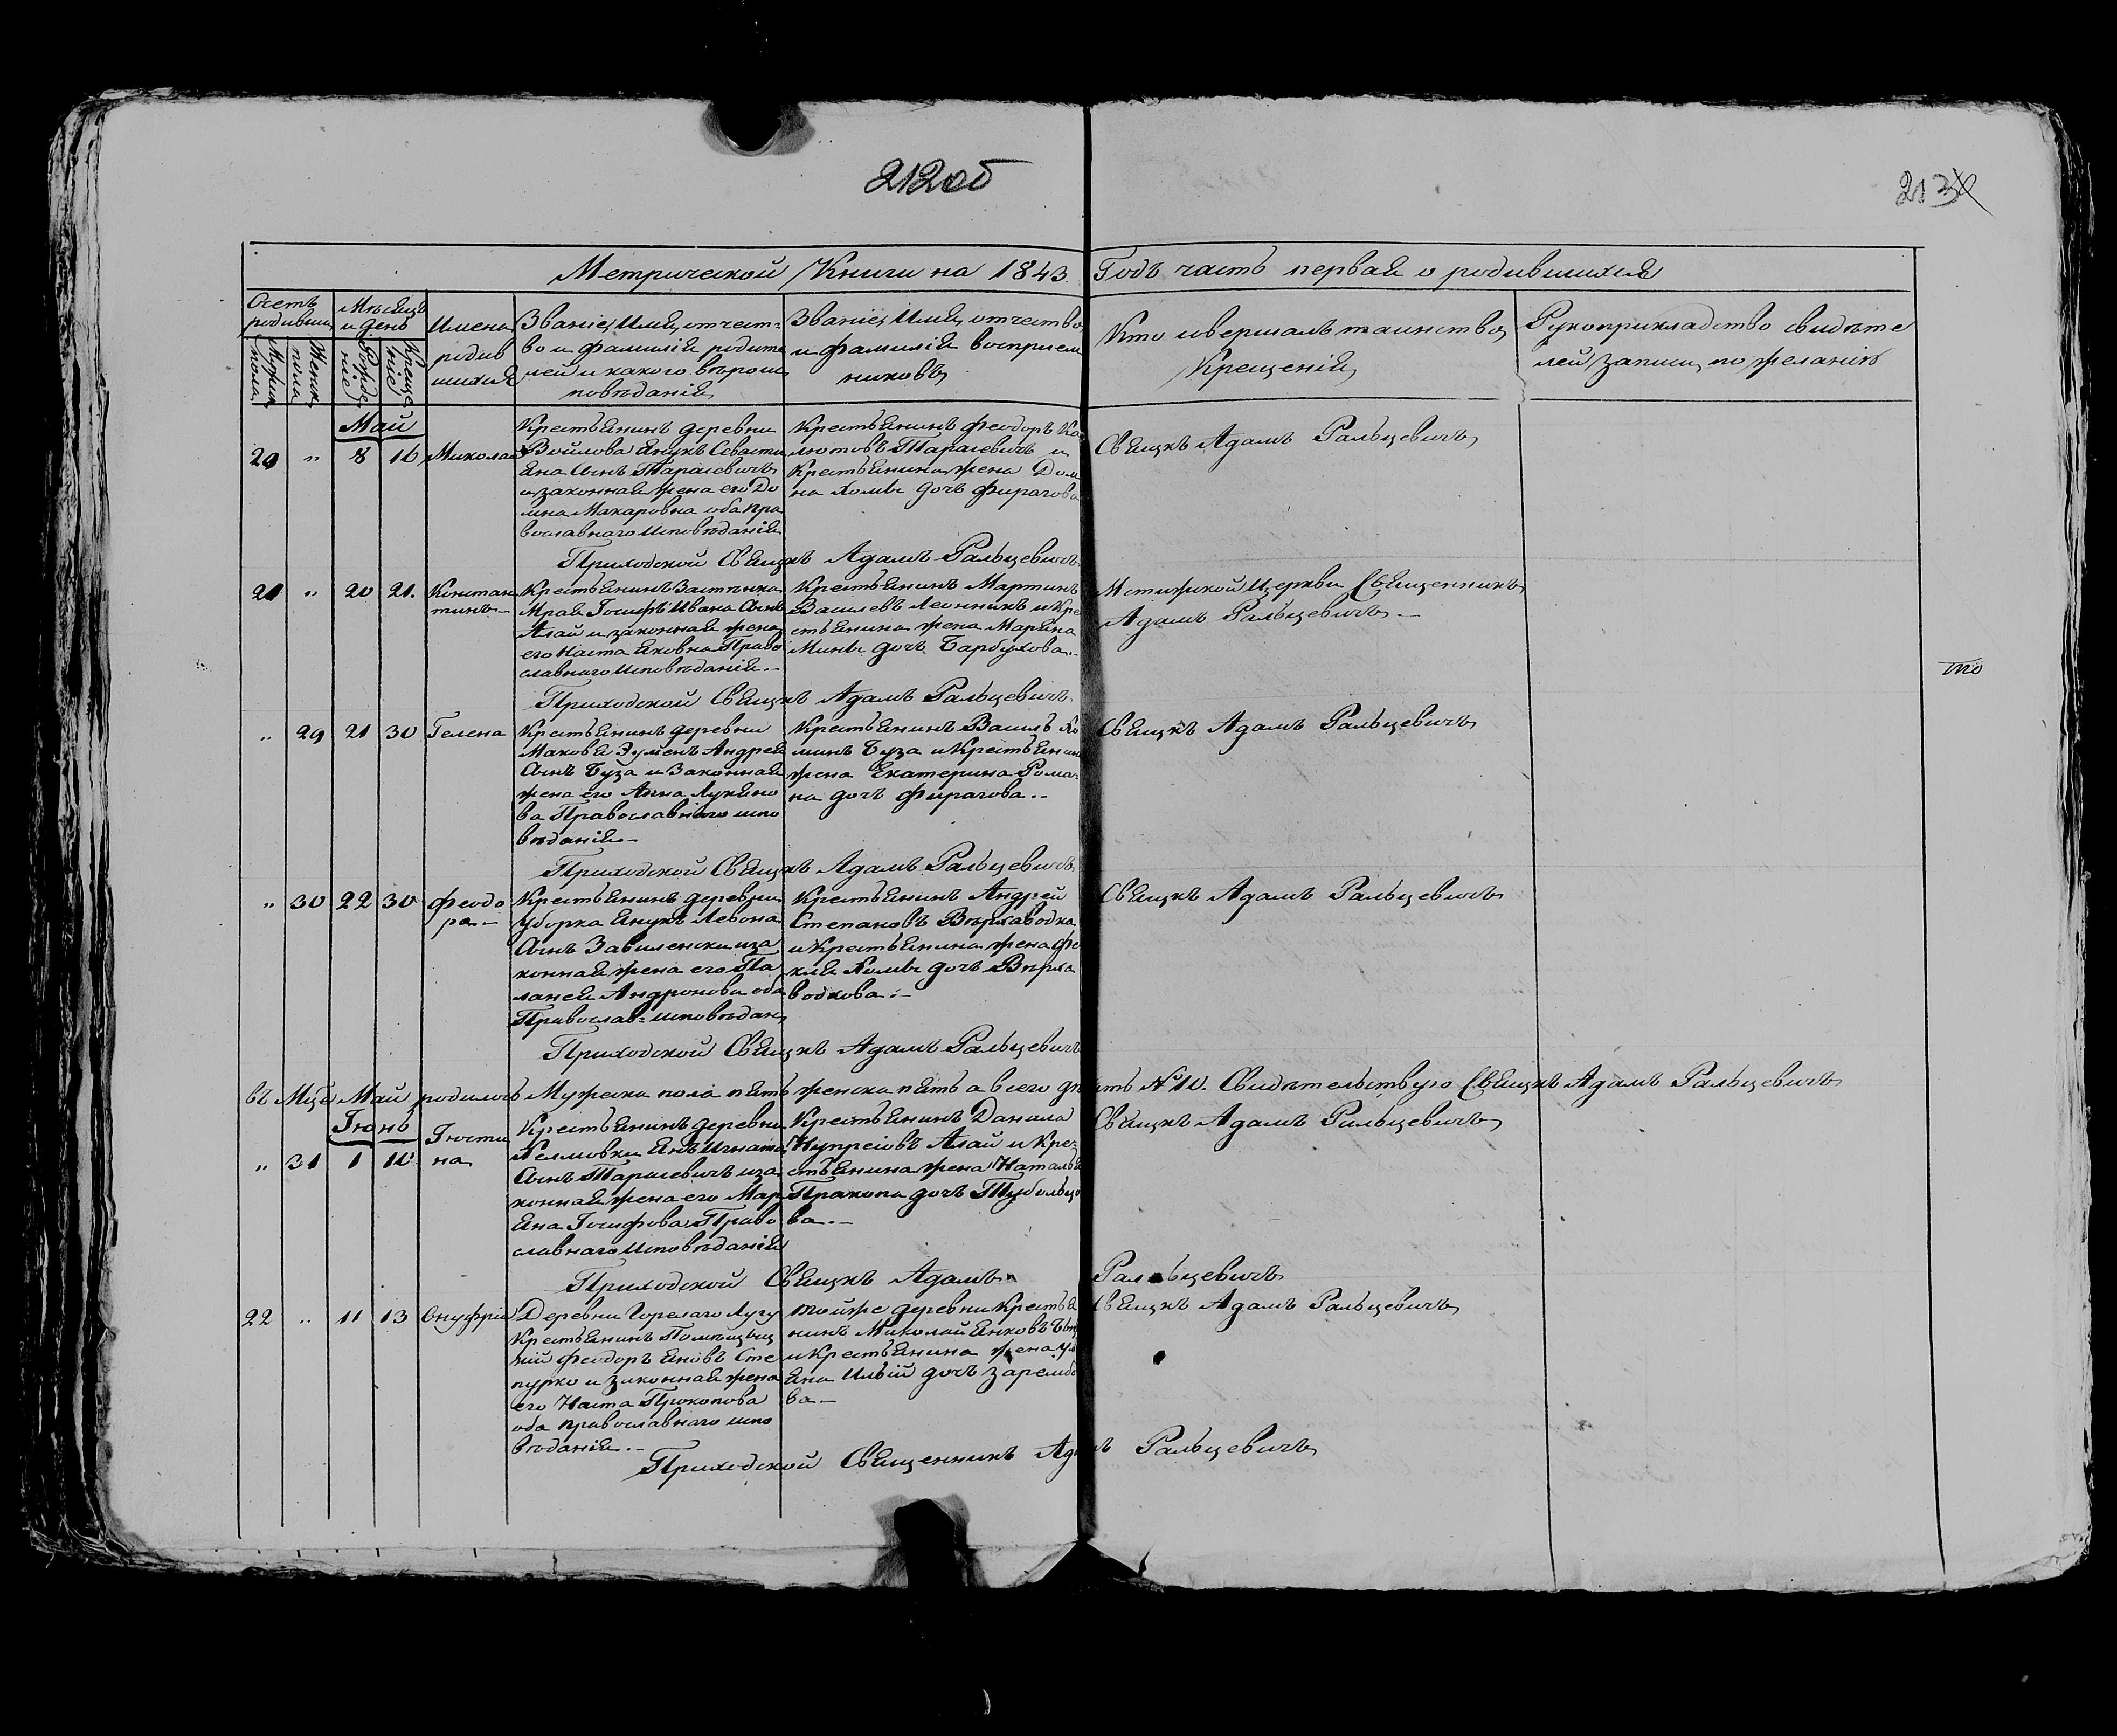 212 об
213
Метрической Книги на 1843 Годъ часть первая о родившихся
Счетъ родивших
Мужеск пола
Женск пола
Мѣсяцъ и день
Рожде ніе
Креще ніе
Имена родив шихся
Званіе, Имя, отчест= во и фамилія родите лей и какого вѣроис повѣданія
Званіе, Имя, отчество и фамилія восприем никовъ
Кто совершалъ таинство Крещенія
Рукоприкладство свидѣте лей записи по желанію
Май
20 „ 8 16 Миколай
Крестьянинъ деревни
Войлова Янукъ Севасти
яна сынъ Тарасевичъ
и законная жена его До
мна Макаровна оба пра
вославнаго исповѣданія
Крестьянинъ Феодоръ
Тарасевичъ и
Крестьянина жена Дом
на Хомы дочь Фирагова
Свящкъ Адамъ Ральцевичъ
Приходской Свящкъ Адамъ Ральцевичъ
21 „ 20 21. Констан
тинъ
Крестьянинъ Застѣнка
Мрая Іосифъ Ивана сынъ
Алай и законная жена
его Наста Яковна Право
славнаго исповѣданія.
Крестьянинъ Мартинъ
Василевъ Леонникъ и Кре
стьянина жена Марьяна
Мины дочь Барбухова.
Мстижской Церкви Священникъ
Адамъ Ральцевичъ
Приходской Свящкъ Адамъ Ральцевичъ
„ 29 21 30 Гелена
Крестьянинъ деревни
Маковья Эуменъ Андрея
сынъ Буза и Законная
жена его Анна Лукьяно
ва Православнаго испо
вѣданія
Крестьянинъ Василь Хо
минъ Буза и Крестьянина
жена Екатерина Рома=
на дочь Фирагова.
Свящкъ Адамъ Ральцевичъ
Приходской Свящкъ Адамъ Ральцевичъ
„ 30 22 30 Феодо
ра.
Крестьянинъ деревни
Уборка Янукъ Левона
сынъ Завиленски и за
конная жена его Па
ланея Андронова оба
Православ= исповѣдан
Крестьянинъ Андрей
Степановъ Вѣрхаводка
и Крестьянина жена Фе
кля Хомы дочь Вѣрха
водкова
Свящкъ Адамъ Ральцевичъ
Приходской Свящкъ Адамъ Ральцевичъ
въ Мцѣ Май родилось Мужеска пола пять женска пять а всего десять № 10. Свидѣтельствую Свящкъ Адамъ Ральцевичъ
Іюнь
„ 31 1 10 Іюсти
на
Крестьянинъ деревни
Селмовки Янъ Игната
сынъ Тарасевичъ и за
конная жена его Мар
яна Іосифова Право
славнаго исповѣданія
Крестьянинъ Данила
Купреіовъ Алай и Кре=
стьянина жена Наталья
Пракопа дочь Тубольцо
ва.
Свящкъ Адамъ Ральцевичъ
Приходской Свящкъ Адамъ Ральцевичъ
22 „ 11 13 Онуфрій
Деревни Горелаго Лугу
Крестьянинъ Помѣщиц
кій Феодоръ Яновъ Сте
пурко и законная жена
его Наста Прокопова
оба православнаго испо
вѣданія.
той же деревни Крестья
нинъ Миколай Янковъ
и Крестьянина жена Ул
яна Ильій дочь Зарембо
ва
Свящкъ Адамъ Ральцевичъ
Приходской Священникъ Адамъ Ральцевичъ